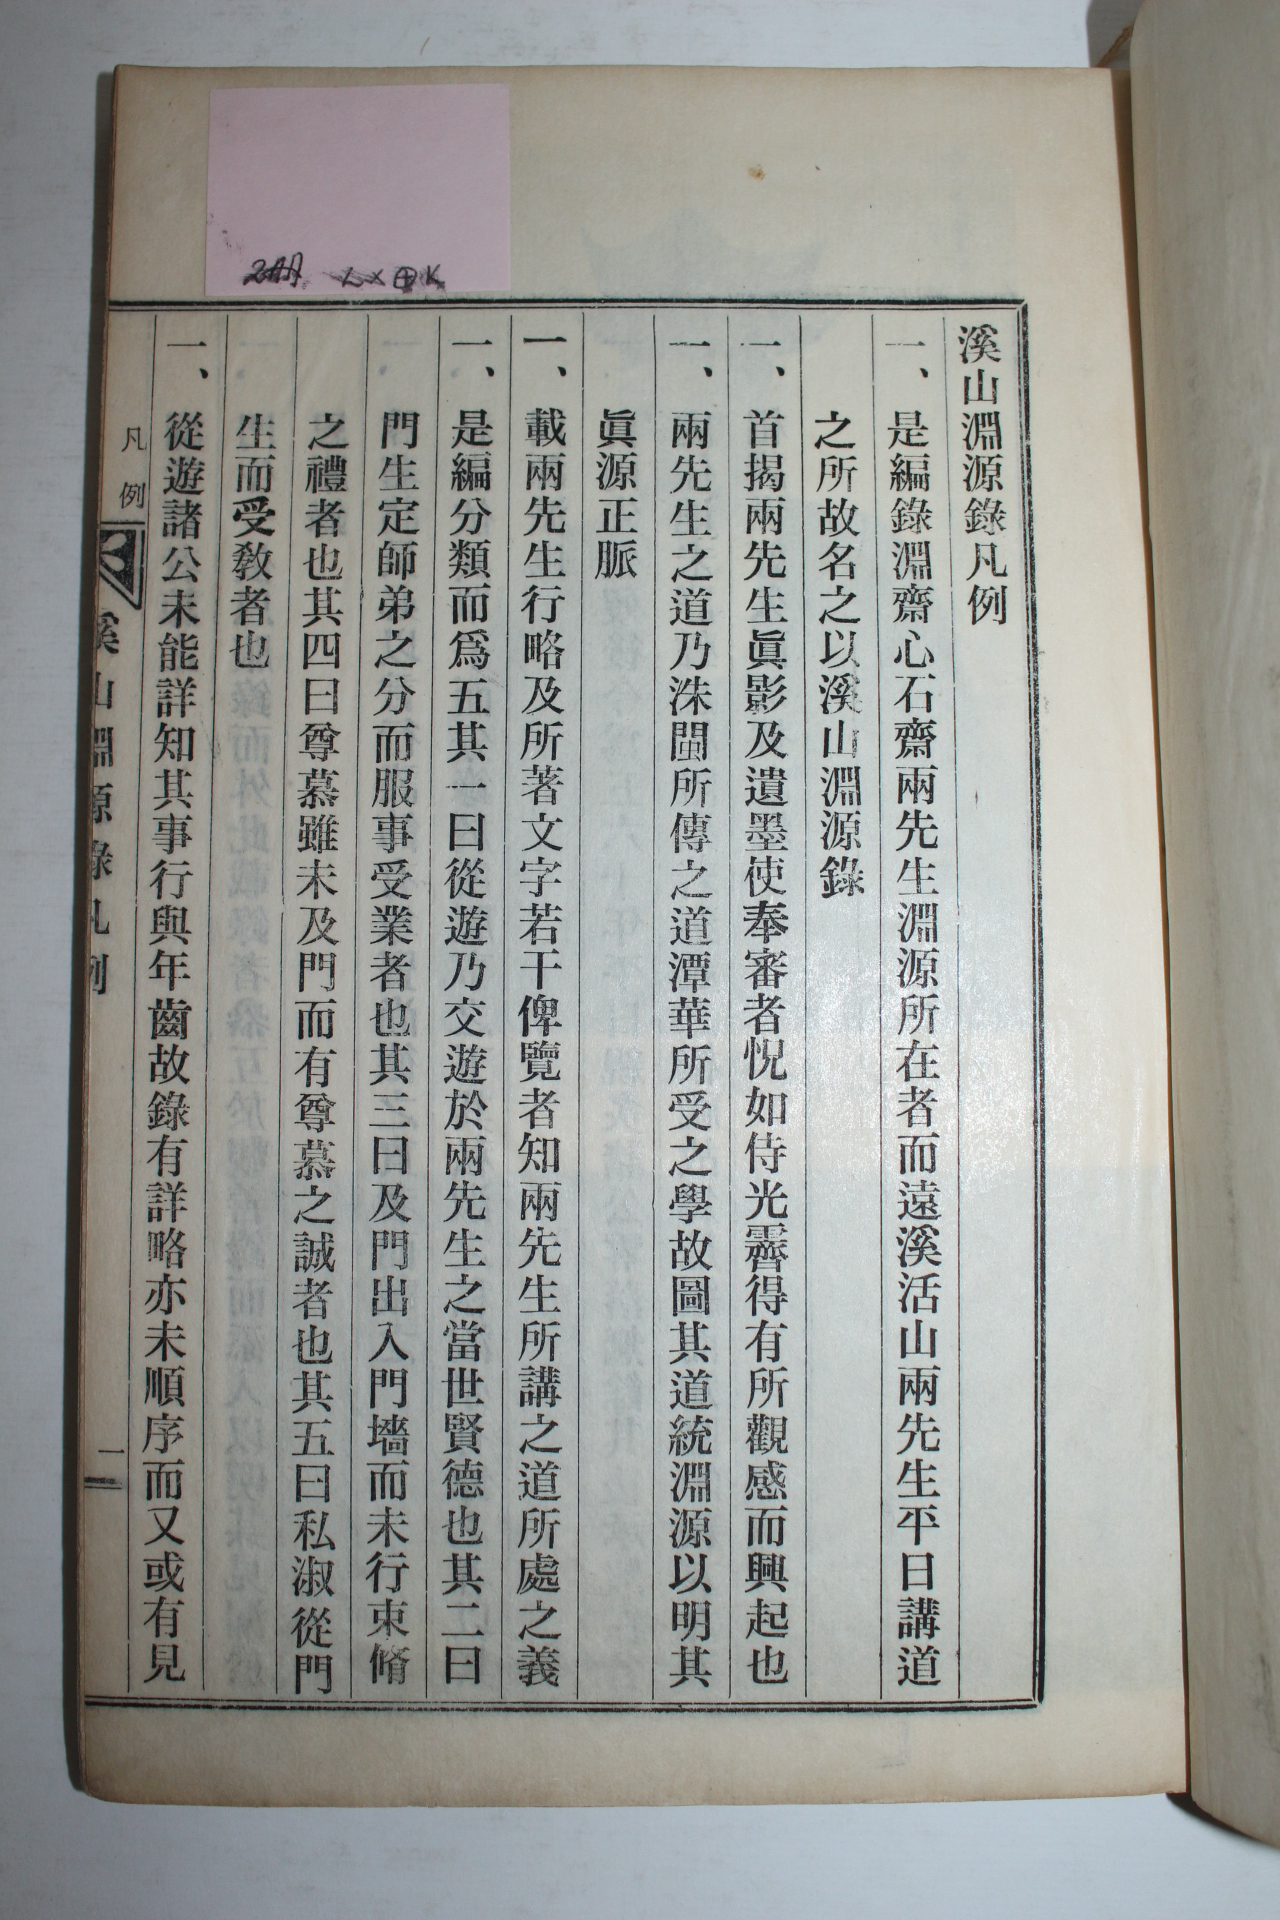 溪山淵源錄凡例
一、是編錄淵齋心石齋兩先生淵源所在者而遠溪活山兩先生平日講道
之所故名之以溪山淵源錄
一、首揭兩先生眞影及遺墨使奉審者怳如侍光霽得有所觀感而興起也
一、兩先生之道乃洙閩所傳之道潭華所受之學故圖其道統淵源以明其
眞源正脈
一、載兩先生行略及所著文字若干俾覽者知兩先生所講之道所處之義
一、是編分類而爲五其一曰從遊乃交遊於兩先生之當世賢德也其二曰
門生定師弟之分而服事受業者也其三曰及門出入門墻而未行束脩
之禮者也其四曰尊慕雖未及門而有尊慕之誠者也其五曰私淑從門
生而受敎者也
一、從遊諸公未能詳知其事行與年齒故錄有詳略亦未順序而又或有見
凡例
溪山淵源錄凡例
一